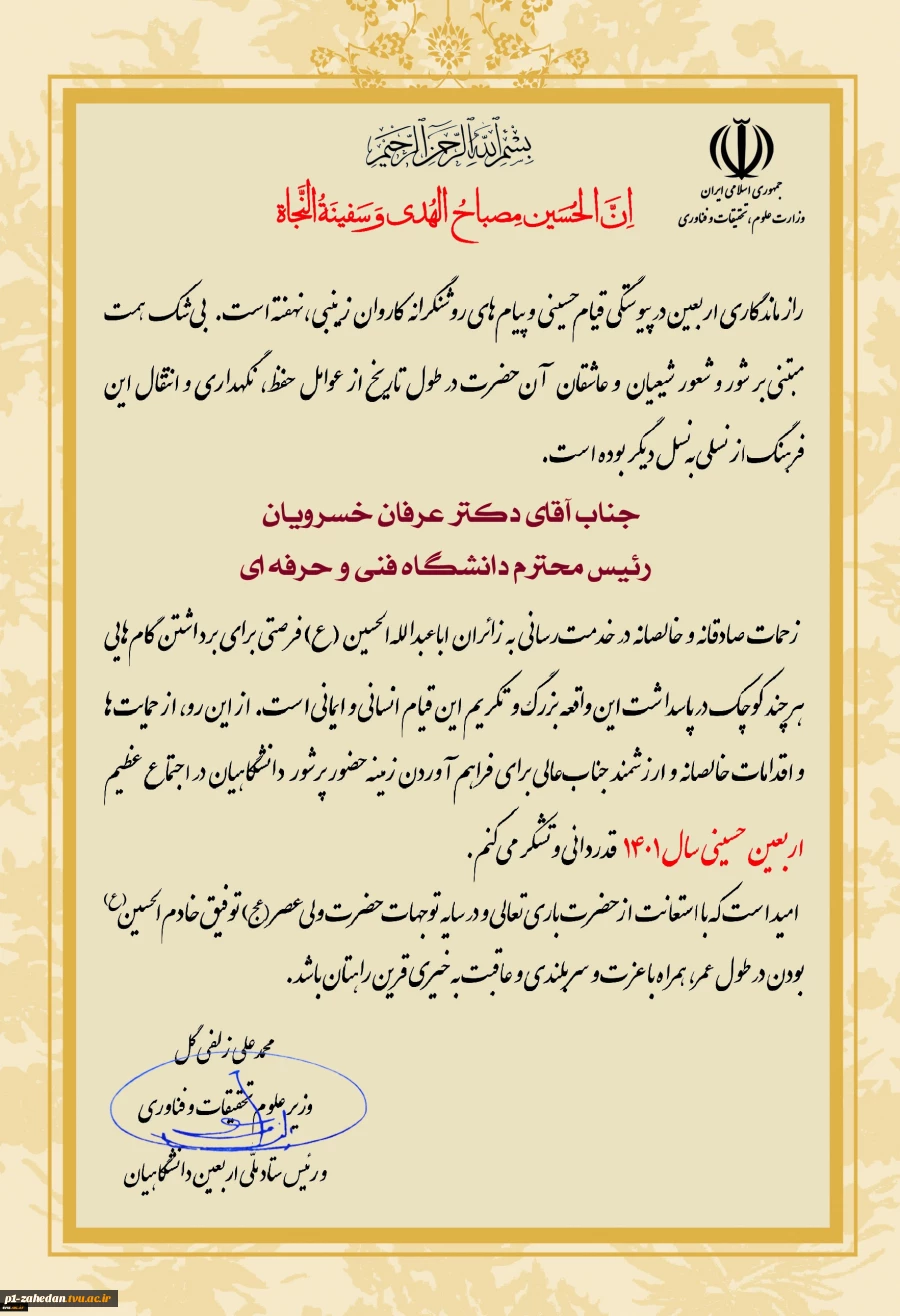 بسم الله الرحمن الرحیم
جمهوری اسلامی ایران
وزارت علوم، تحقیقات و فناوری
اِنَّ الحُسَین مِصباحُ الهُدی وَ سَفینَةُ النَّجاة
راز ماندگاری اربعین در پیوستگی قیام حسینی و پیام های روشنگرانه کاروان زینبی، نهفته است. بی شک همت
مبتنی بر شور و شعور شیعیان و عاشقان آن حضرت در طول تاریخ از عوامل حفظ، نگهداری و انتقال این
فرهنگ از نسلی به نسل دیگر بوده است.
جناب آقای دکتر عرفان خسرویان
رئیس محترم دانشگاه فنی و حرفه ای
زحمات صادقانه و خالصانه در خدمت رسانی به زائران اباعبدالله الحسین (ع) فرصتی برای برداشتن گام هایی
هرچند کوچک در پاسداشت این واقعه بزرگ و تکریم این قیام انسانی و ایمانی است. از این رو، از حمایت ها
و اقدامات خالصانه و ارزشمند جناب عالی برای فراهم آوردن زمینه حضور پرشور دانشگاهیان در اجتماع عظیم
اربعین حسینی سال ۱۴۰۱ قدردانی و تشکر می کنم.
امید است که با استعانت از حضرت باری تعالی و در سایه توجهات حضرت ولی عصر (عج) توفیق خادم الحسین (ع)
بودن در طول عمر، همراه با عزت و سربلندی و عاقبت به خیری قرین راهتان باشد.
محمد علی زلفی گل
وزیر علوم تحقیقات و فناوری
و رئیس ستاد ملّی اربعین دانشگاهیان
p1-zahedan.tvu.ac.ir